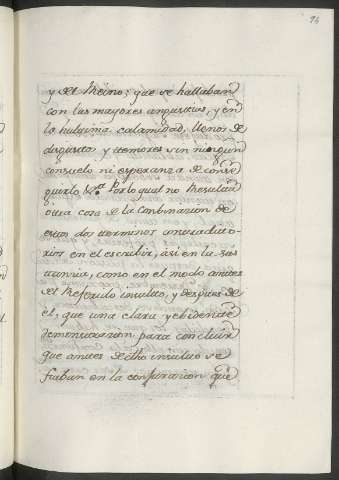 94
y del Reino; que se hallaban
con las mayores angustias, y en
la hultima calamidad, llenos de
disgustos y temores sin ningun
consuelo ni esperanza de conse
guirlo &ª. Por lo qual no Resultan
otra cosa de la Combinacion de
estos dos terminos contradicto-
rios en el escribir, asi en la sus
tancia, como en el modo antes
del Referido insulto, y despues de
el; que una clara, y ebidente
demonstracion para concluir
que antes de dho insulto se
fiaban en la conjuracion que